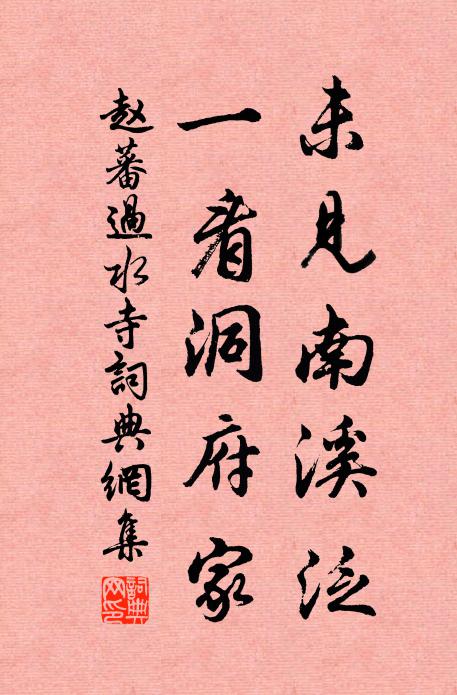 未見南溪泛
一看洞府家
赵蕃過水寺詞典網集
詞典网印